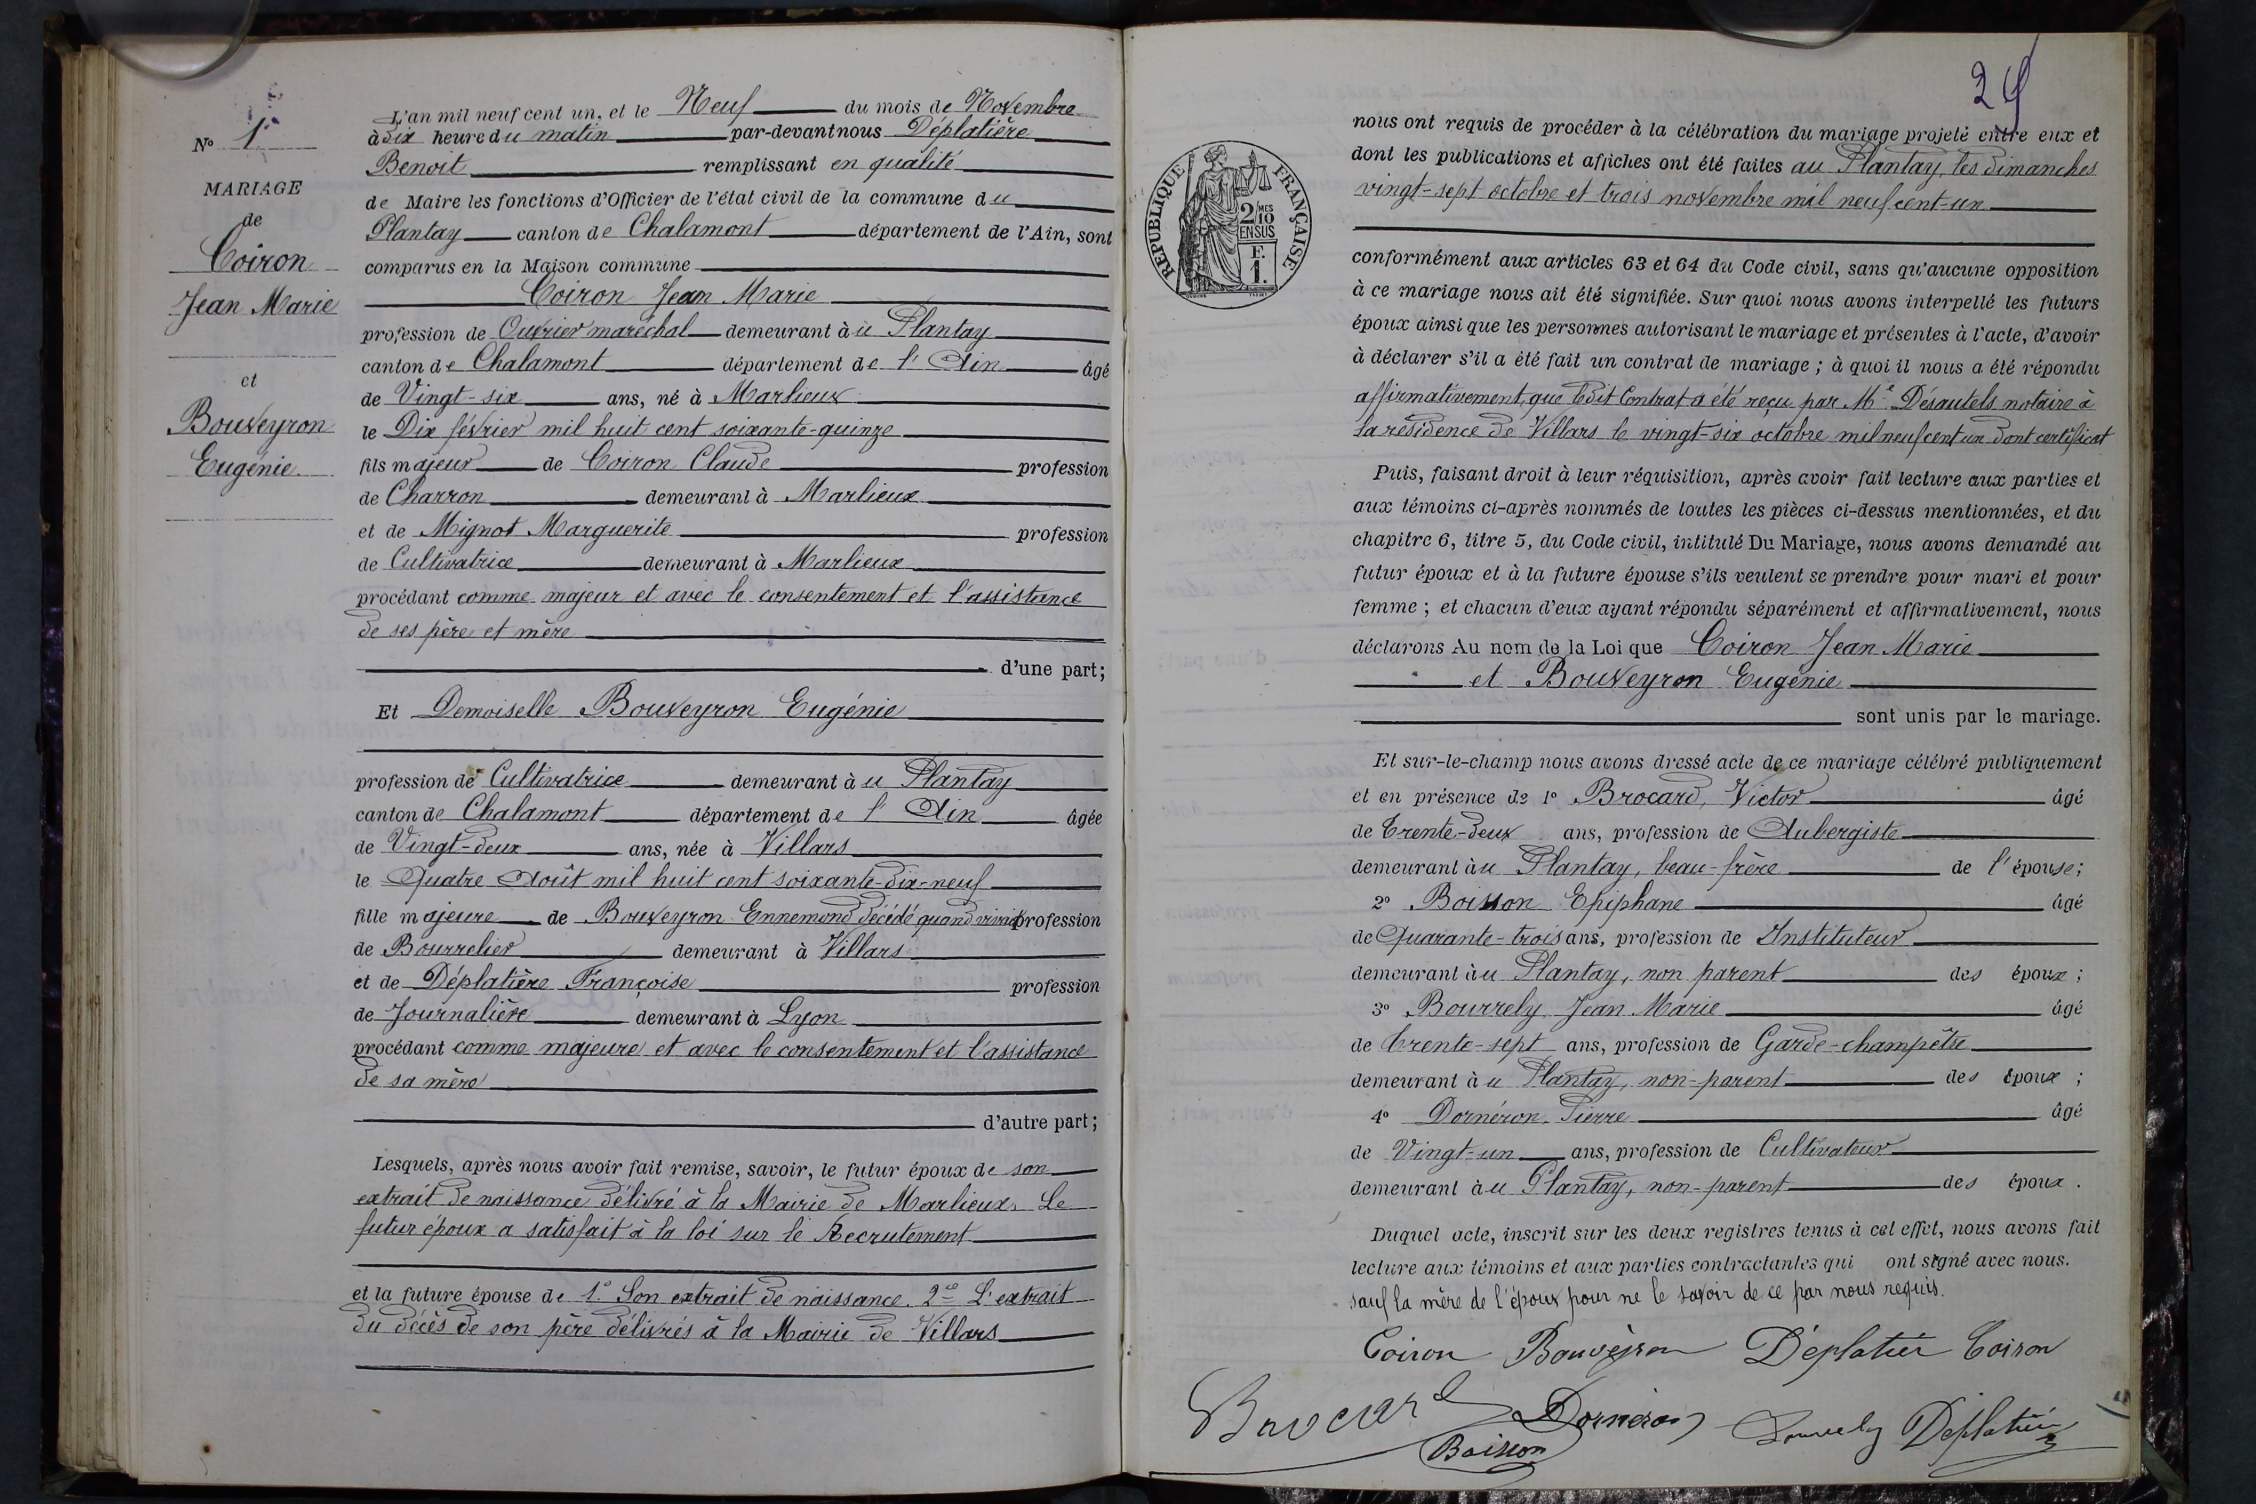 No 1
MARIAGE
de
Coiron
Jean Marie
et
Bouveyron
Eugénie
L'an mil neuf cent un, et le Neuf du mois de Novembre
à dix heure du matin par-devant nous Déplatière
Benoit remplissant en qualité
de Maire les fonctions d'Officier de l'état civil de la commune du
Plantay canton de Chalamont département de l'Ain, sont
comparus en la Maison commune
Coiron Jean Marie
profession de Ouvrier maréchal demeurant à u Plantay
canton de Chalamont département de l'Ain âgé
de Vingt-six ans, né à Marlieux
le Dix février mil huit cent soixante-quinze
fils majeur de Coiron Claude profession
de Charron demeurant à Marlieux
et de Mignot Marguerite profession
de Cultivatrice demeurant à Marlieux
procédant comme majeur et avec le consentement et l'assistance
de ses père et mère
d'une part;
Et Demoiselle Bouveyron Eugénie
profession de Cultivatrice demeurant à u Plantay
canton de Chalamont département de l'Ain âgée
de Vingt-deux ans, née à Villars
le Quatre Août mil huit cent soixante-dix-neuf
fille majeure de Bouveyron Ennemond décédé quand vivait profession
de Bourrelier demeurant à Villars
et de Déplatière Françoise profession
de Journalière demeurant à Lyon
procédant comme majeure et avec le consentement et l'assistance
de sa mère
d'autre part;
Lesquels, après nous avoir fait remise, savoir, le futur époux de son
extrait de naissance délivré à la Mairie de Marlieux. Le
futur époux a satisfait à la loi sur le Recrutement
et la future épouse de 1° Son extrait de naissance. 2° L'extrait
du décès de son père délivrés à la Mairie de Villars
29
RÉPUBLIQUE FRANÇAISE
2/10 MES
EN SUS
F.
1.
nous ont requis de procéder à la célébration du mariage projeté entre eux et
dont les publications et affiches ont été faites au Plantay, les dimanches
vingt-sept octobre et trois novembre mil neuf cent-un
conformément aux articles 63 et 64 du Code civil, sans qu'aucune opposition
à ce mariage nous ait été signifiée. Sur quoi nous avons interpellé les futurs
époux ainsi que les personnes autorisant le mariage et présentes à l'acte, d'avoir
à déclarer s'il a été fait un contrat de mariage; à quoi il nous a été répondu
affirmativement, que ledit Contrat a été reçu par Me Désautels notaire à
la résidence de Villars le vingt-six octobre mil neuf cent un dont certificat
Puis, faisant droit à leur réquisition, après avoir fait lecture aux parties et
aux témoins ci-après nommés de toutes les pièces ci-dessus mentionnées, et du
chapitre 6, titre 5, du Code civil, intitulé Du Mariage, nous avons demandé au
futur époux et à la future épouse s'ils veulent se prendre pour mari et pour
femme; et chacun d'eux ayant répondu séparément et affirmativement, nous
déclarons Au nom de la Loi que Coiron Jean Marie
et Bouveyron Eugénie
sont unis par le mariage.
Et sur-le-champ nous avons dressé acte de ce mariage célébré publiquement
et en présence de 1° Brocard, Victor âgé
de trente-deux ans, profession de Aubergiste
demeurant à u Plantay, beau-frère de l'épouse;
2° Boisson Epiphane âgé
de Quarante-trois ans, profession de Instituteur
demeurant à u Plantay, non parent des époux;
3° Bourrely Jean Marie âgé
de trente-sept ans, profession de Garde-champêtre
demeurant à u Plantay, non-parent des époux;
4° Dornéron Pierre âgé
de Vingt-un ans, profession de Cultivateur
demeurant à u Plantay, non-parent des époux.
Duquel acte, inscrit sur les deux registres tenus à cet effet, nous avons fait
lecture aux témoins et aux parties contractantes qui ont signé avec nous.
sauf la mère de l'époux pour ne le savoir de ce par nous requis.
Coiron Bouveyron Déplatièr Coiron
Brocard Dornéron Bourrely Déplatière
Boisson